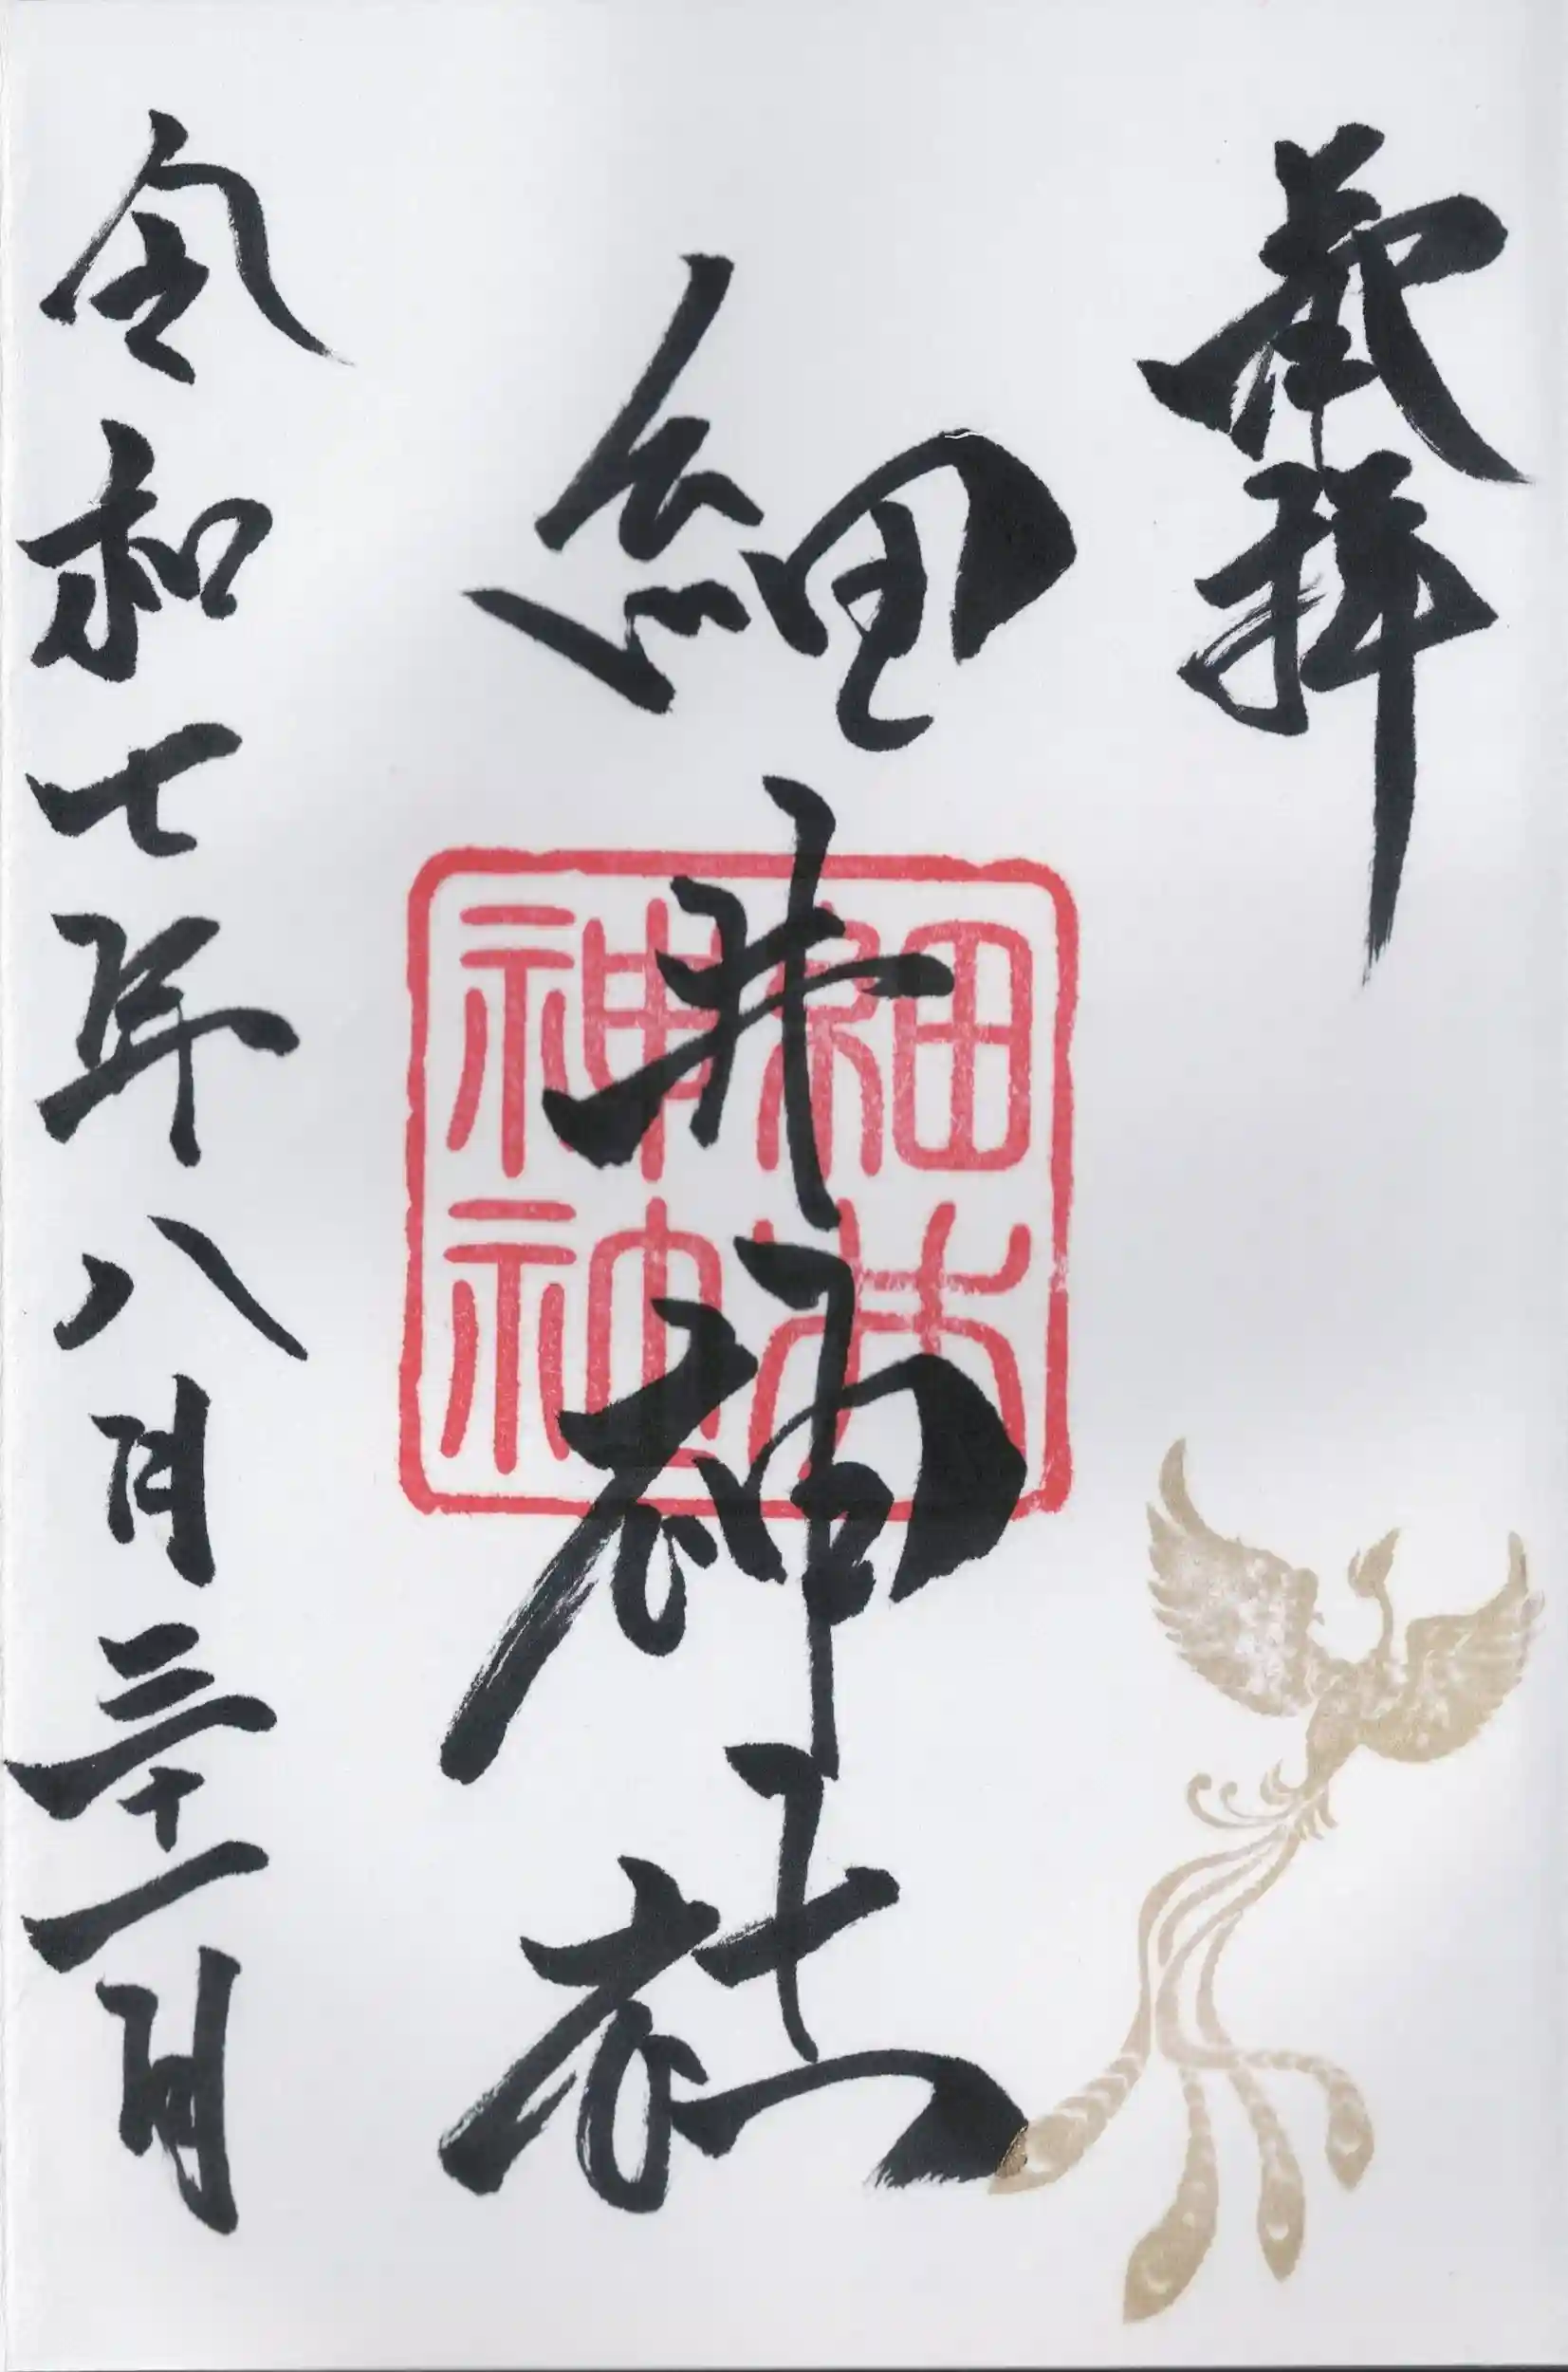 奉拝
細井神社
細井神社
令和七年八月三十一日